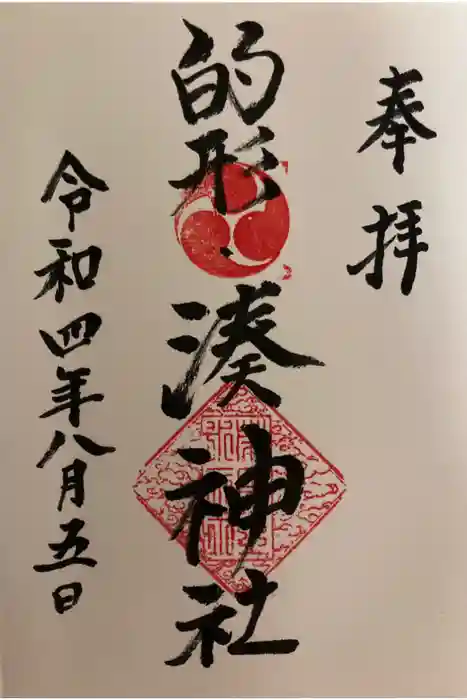 奉拝
的形
湊神社
令和四年八月五日